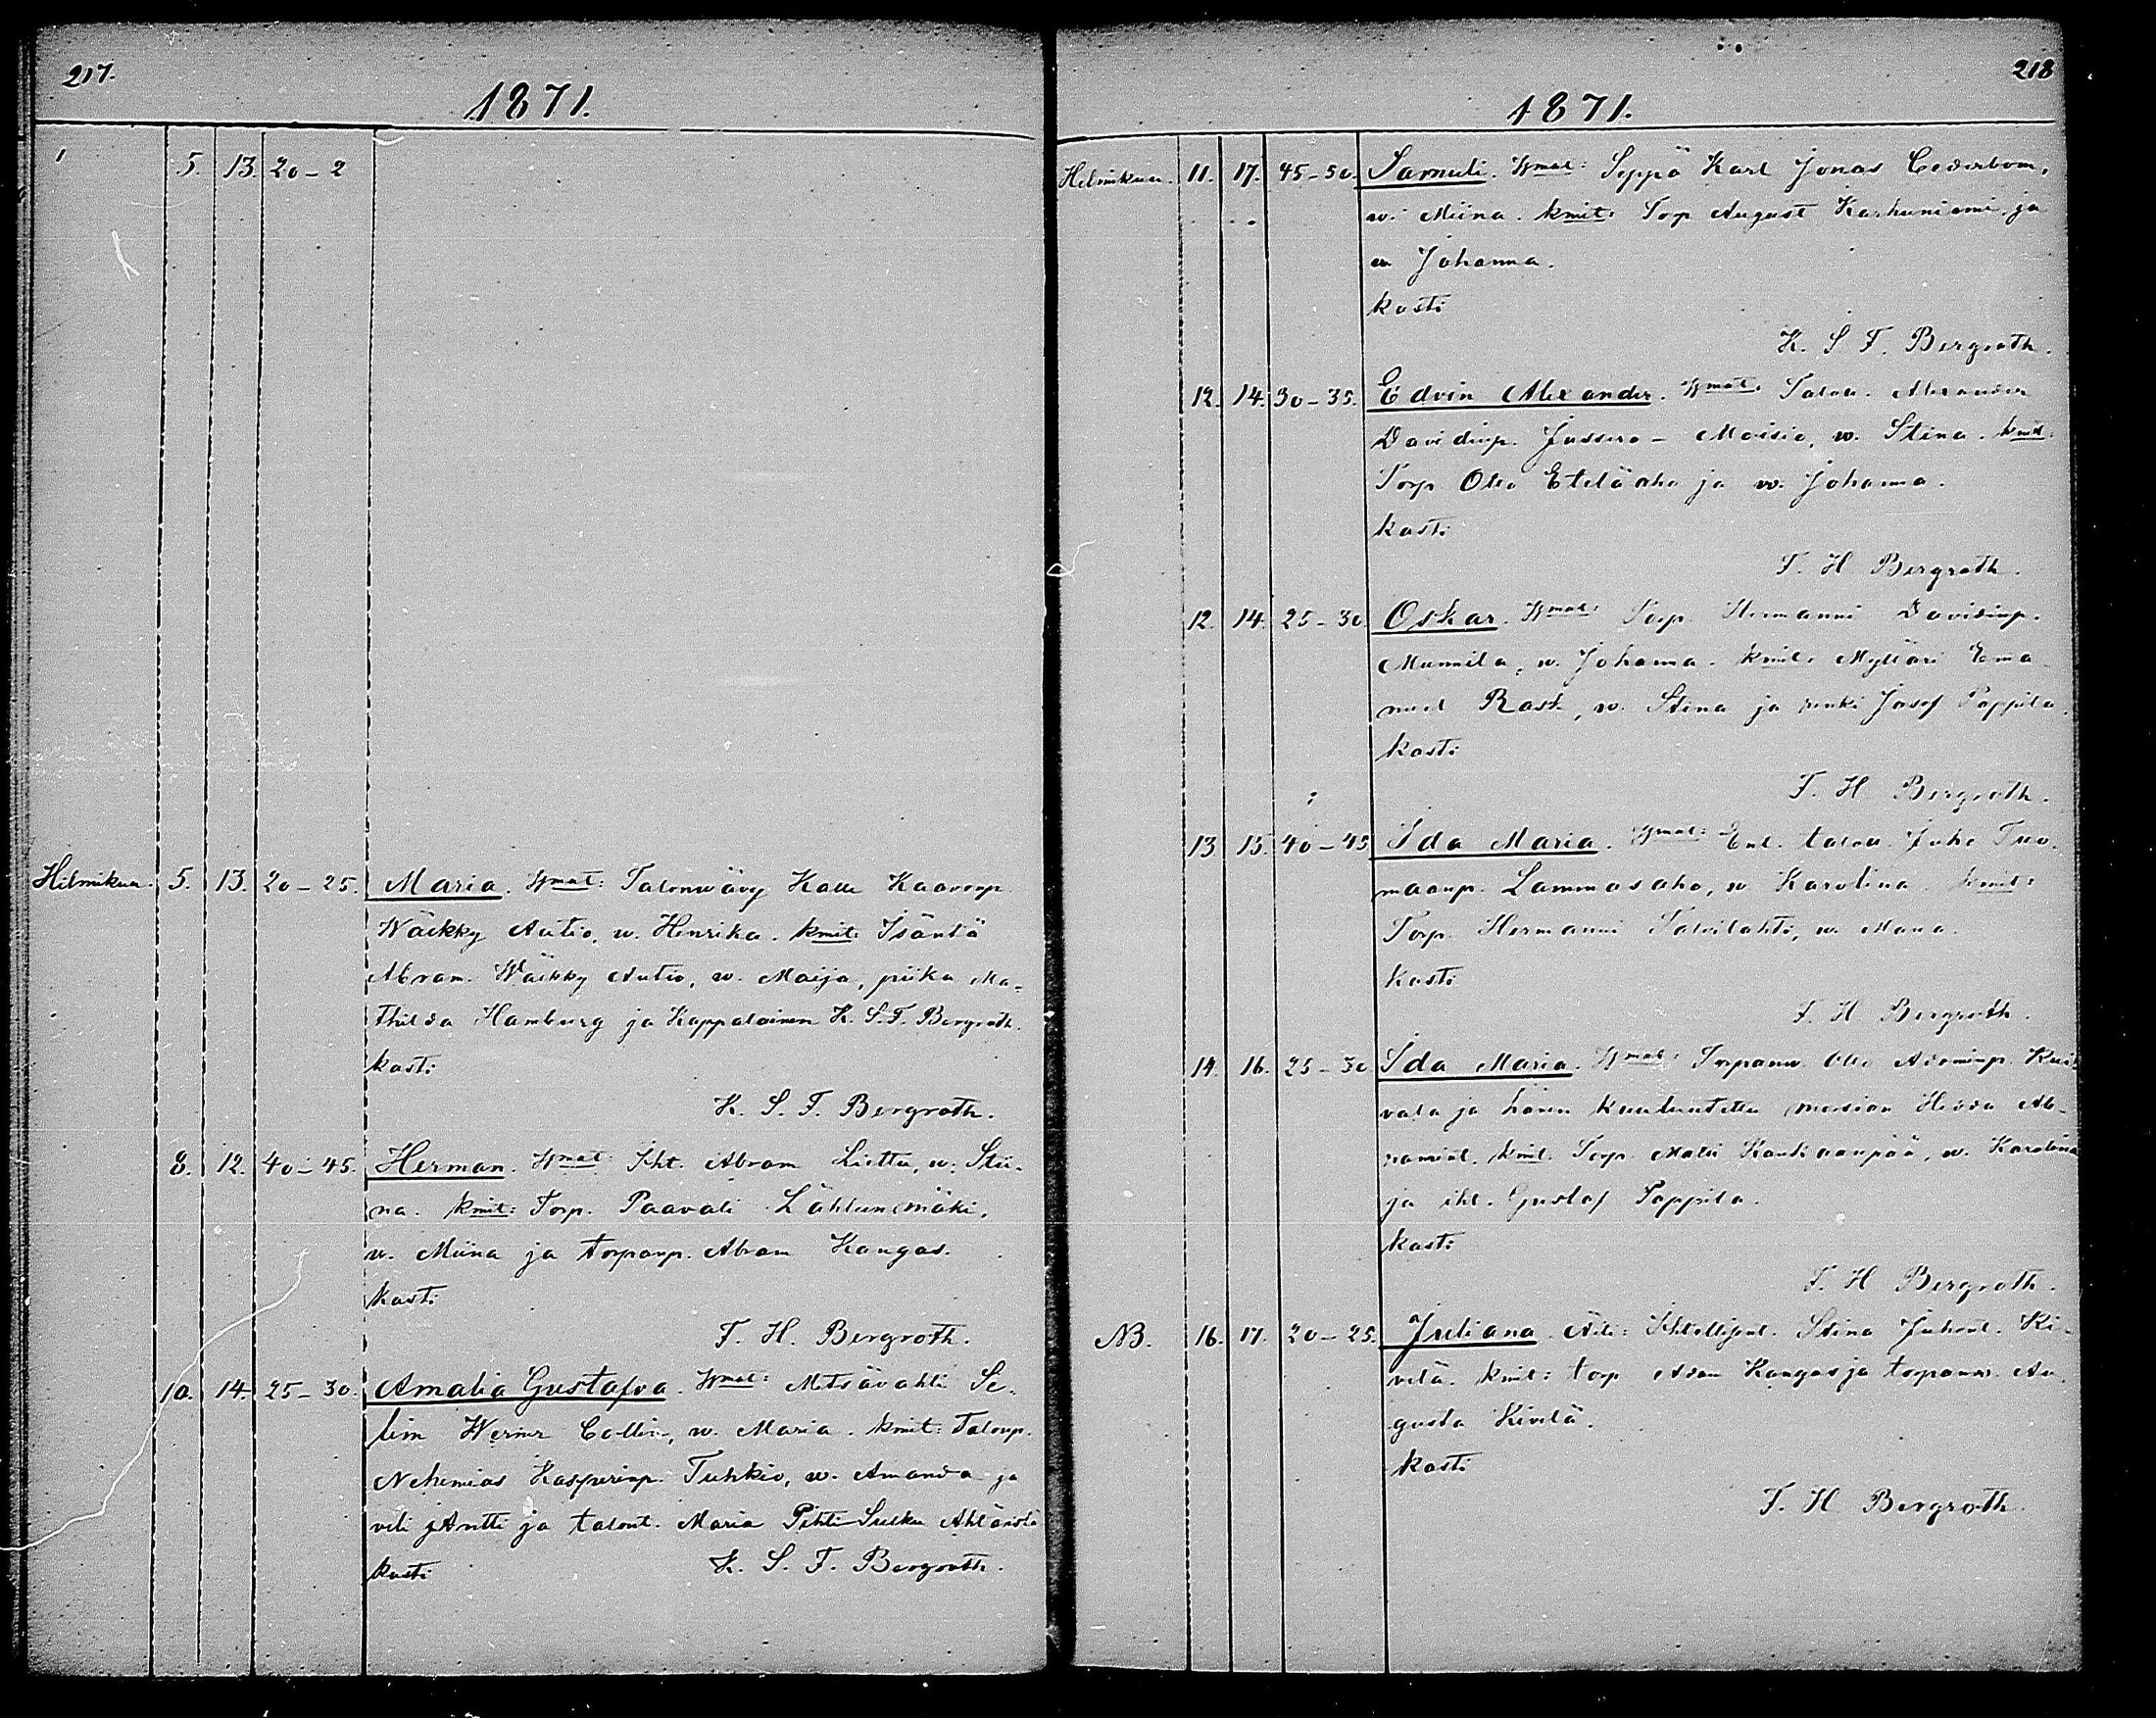 217.
1871.
5. 13. 20-2
Helmikuu. 5. 13. 20-25. Maria. Wmat: Talonwävy Kalle Kaaronp.
Wäikky Autio, w. Henrika. kmit: Isäntä
Abram Wäikky Autio, w. Maija, piika Ma-
thilda Hamburg ja Kappalainen K. S. F. Bergroth.
kasti
K. S. F. Bergroth.
8. 12. 40-45. Herman. Wmat: Iht. Abram Liettu, w. Stii-
na. kmit: Torp. Paavali Lähteenmäki,
w. Miina ja torparp. Abram Kangas.
kasti
F. H. Bergroth.
10. 14. 25-30. Amalia Gustafva. Wmat: Metsävahti Se-
lim Werner Collin, w. Maria. kmit: Talonp.
Nehemias Kasperinp. Tuhkio, w. Amanda ja
veli Antti ja talont. Maria Pihti-Sulku Ahlaistä
kasti K. S. F. Bergroth.
218
1871.
Helmikuu. 11. 17. 45-50. Samuli. Wmat: Seppä Karl Jonas Cederbom,
w. Miina. kmit: Torp August Karhuniemi ja
w Johanna.
kasti
K. S F. Bergroth.
12. 14. 30-35. Edvin Alexander. Wmat: Talon. Alexander
Davidinp. Jussero-Moisio, w. Stina. kmit:
Torp Otto Eteläaho ja w. Johanna.
kasti
F. H Bergroth.
12. 14. 25-30. Oskar. Wmat: Torp. Hermanni Davidinp.
Munnila, w. Johanna. kmit: Mylläri Ema-
nuel Rask, w. Stina ja renki Josef Pappila.
kasti
F. H Bergroth.
13 15. 40-45 Ida Maria. Wmat: Ent. talon. Juho Tuo-
maanp. Lammasaho, w Karolina. kmit:
Torp. Hermanni Salvilahti, w. Maria.
kasti
F. H Bergroth.
14. 16. 25-30 Ida Maria. Wmat: Torpanw. Otto Adaminp.
vala ja hänen kuulutettu morsian Hedda Ab-
ramint. kmit. Torp. Matti Kankaanpää, w. Karolina
ja iht. Gustaf Pappila.
kasti
F. H Bergroth.
NB. 16. 17. 20-25. Juliana. Äiti: Ihtellijent. Stina Juhont. Ki-
velä. kmit: torp Adam Kangas ja torparw. Au-
gusta Kivelä.
kasti
F. H Bergroth